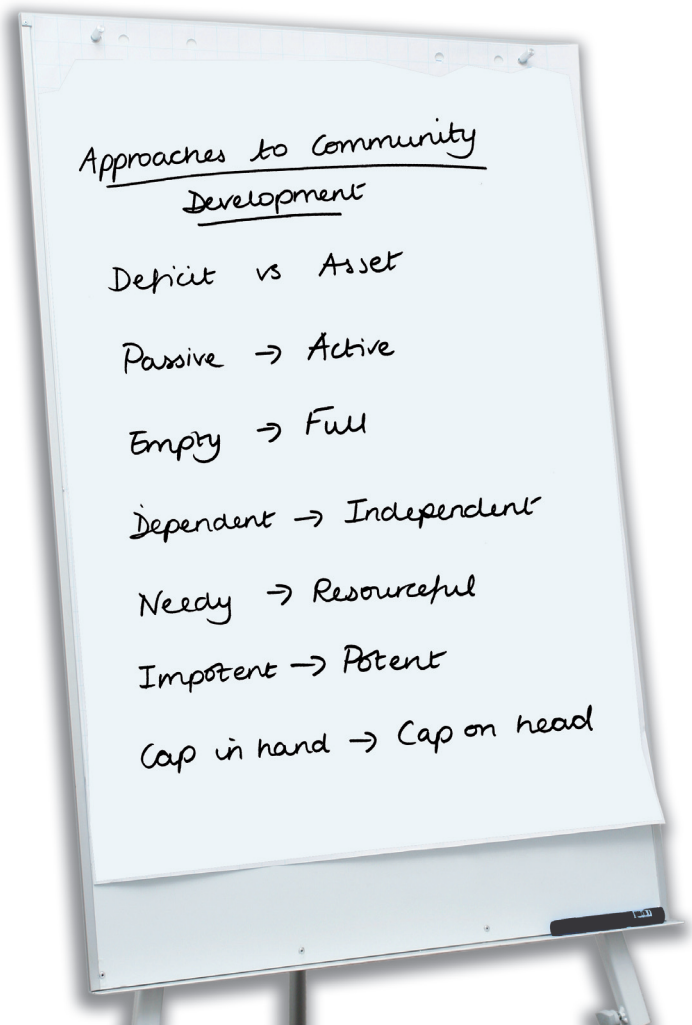 Approaches to Community
Development
Deficit vs Asset
Passive → Active
Empty → Full
Dependent → Independent
Needy → Resourceful
Impotent → Potent
Cap in hand → Cap on head